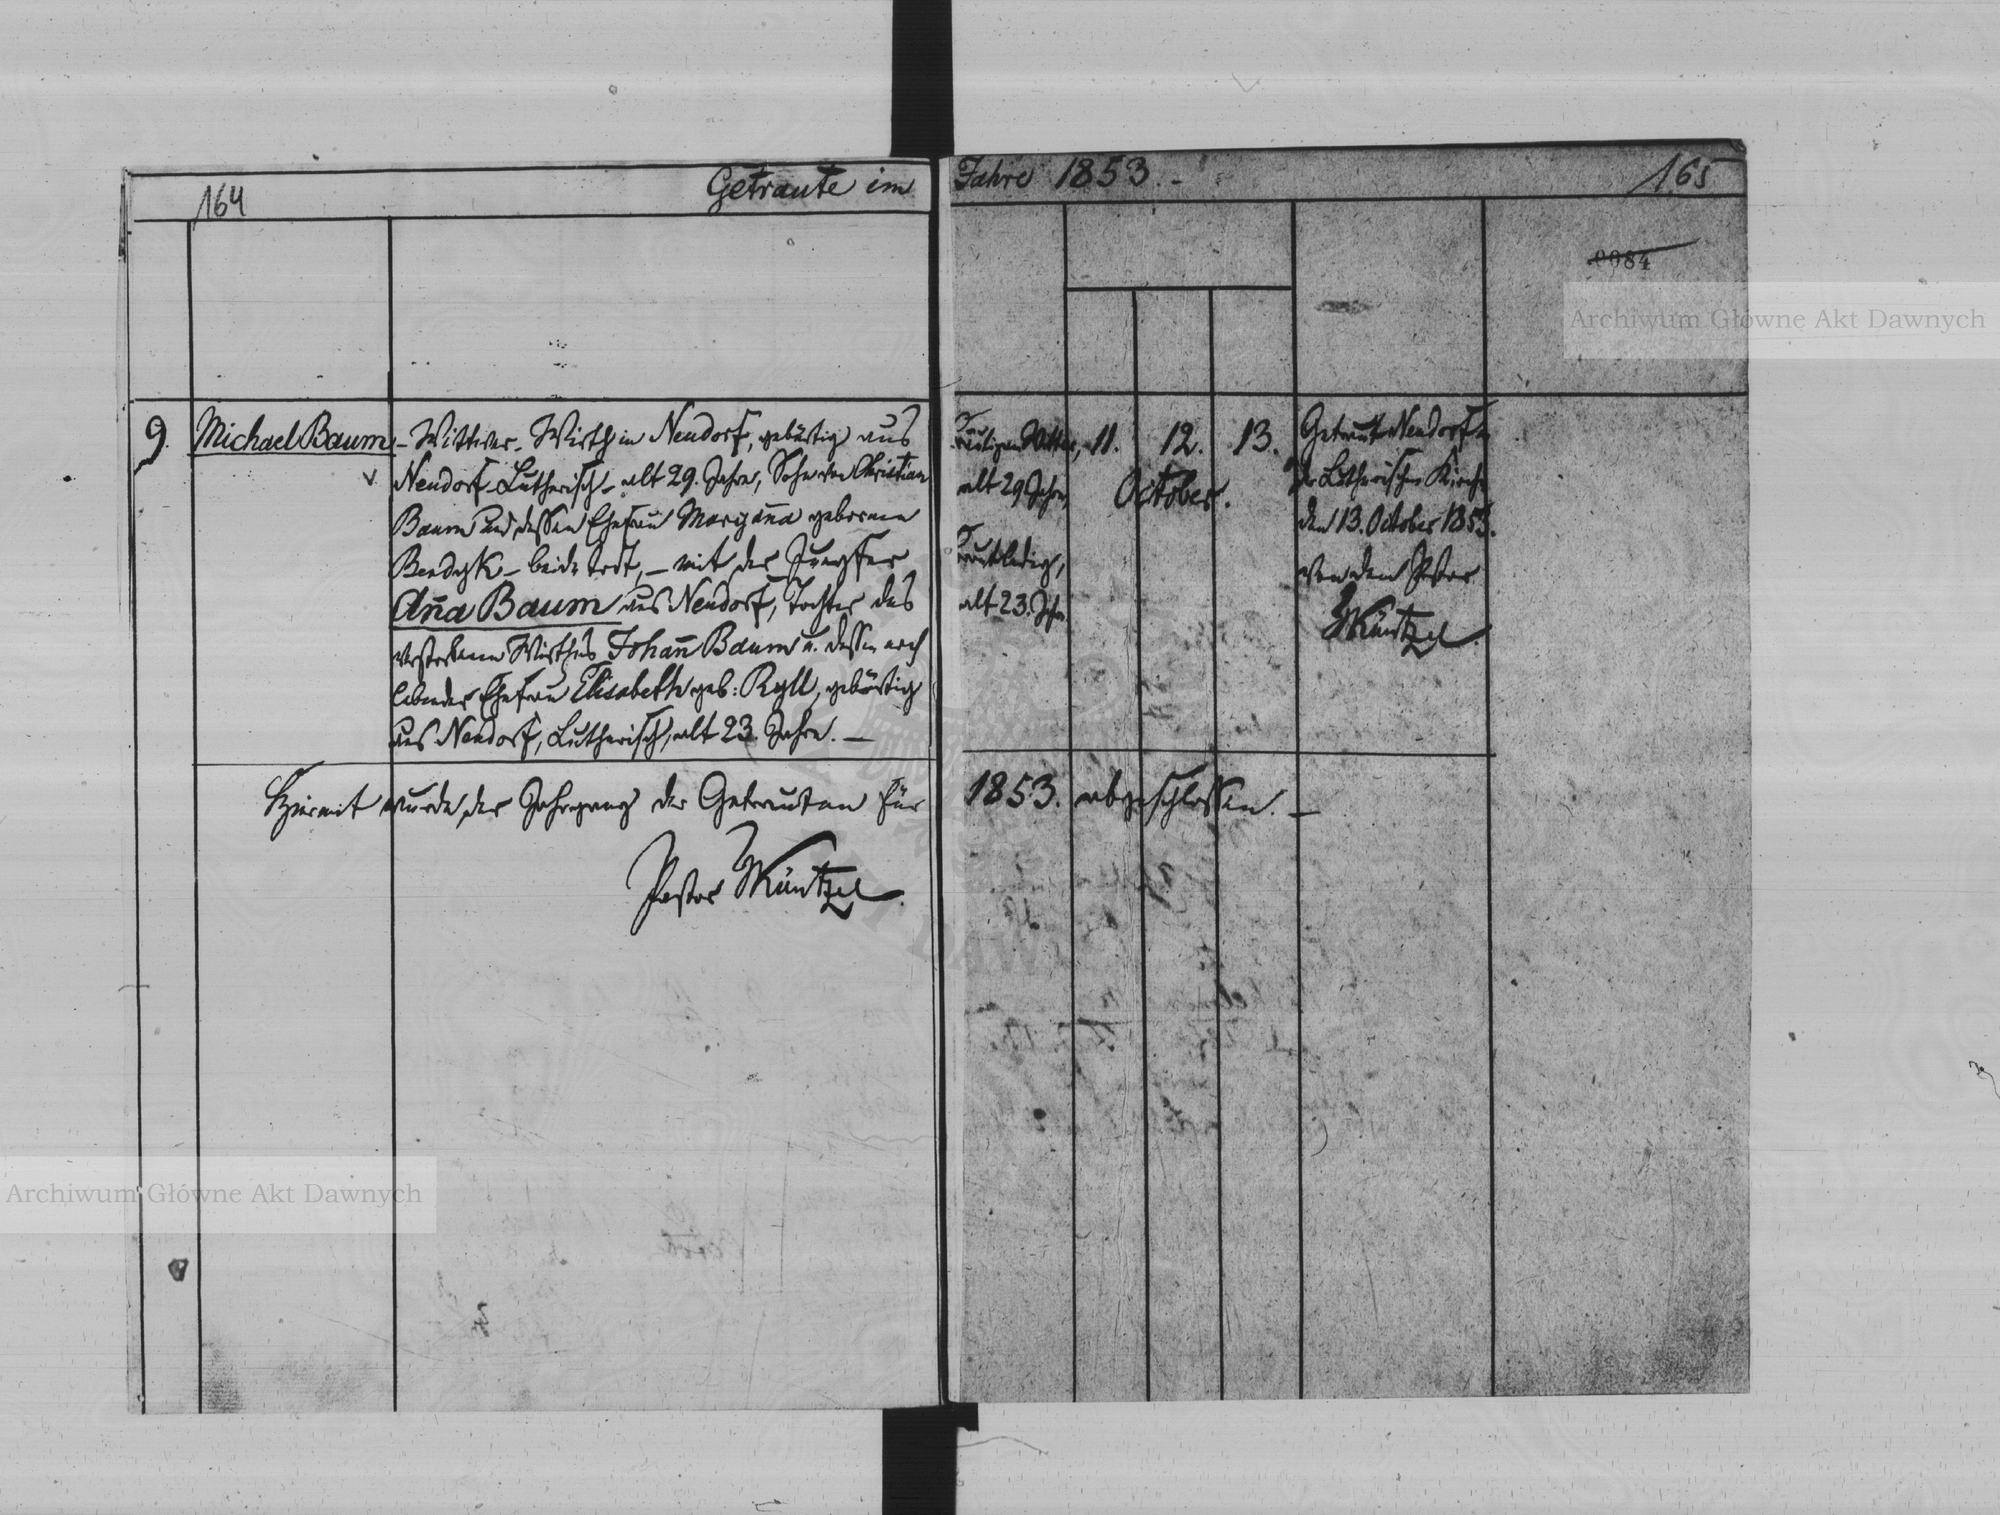 164
Getraute im
Jahre 1853. -
165
0084
Archiwum Główne Akt Dawnych
9.
Michael Baum
- Wittwer, Wirth in Neudorf, gebürtig aus
Neudorf - Lutherisch - alt 29. Jahre, Sohn von Christian
Baum und dessen Ehefrau Maryanna geborenen
Bendyk - beide todt, - mit der Jungfer
Anna Baum aus Neudorf, Tochter des
verstorbenen Wirthes Johann Baum u. dessen noch
lebender Ehefrau Elisabeth geb: Ryll, gebürtig
aus Neudorf, Lutherisch, alt 23. Jahre. -
alt 29 Jahre,
ledig,
alt 23. Jhr.
11. 12. 13.
October.
Getraut Neudorf in
der Lutherischen Kirche
den 13. October 1853.
von dem Pastor
Müntzel.
Hiermit wurde der Jahrgang der Getrauten für
1853. abgeschlossen. -
Pastor Müntzel.
Archiwum Główne Akt Dawnych